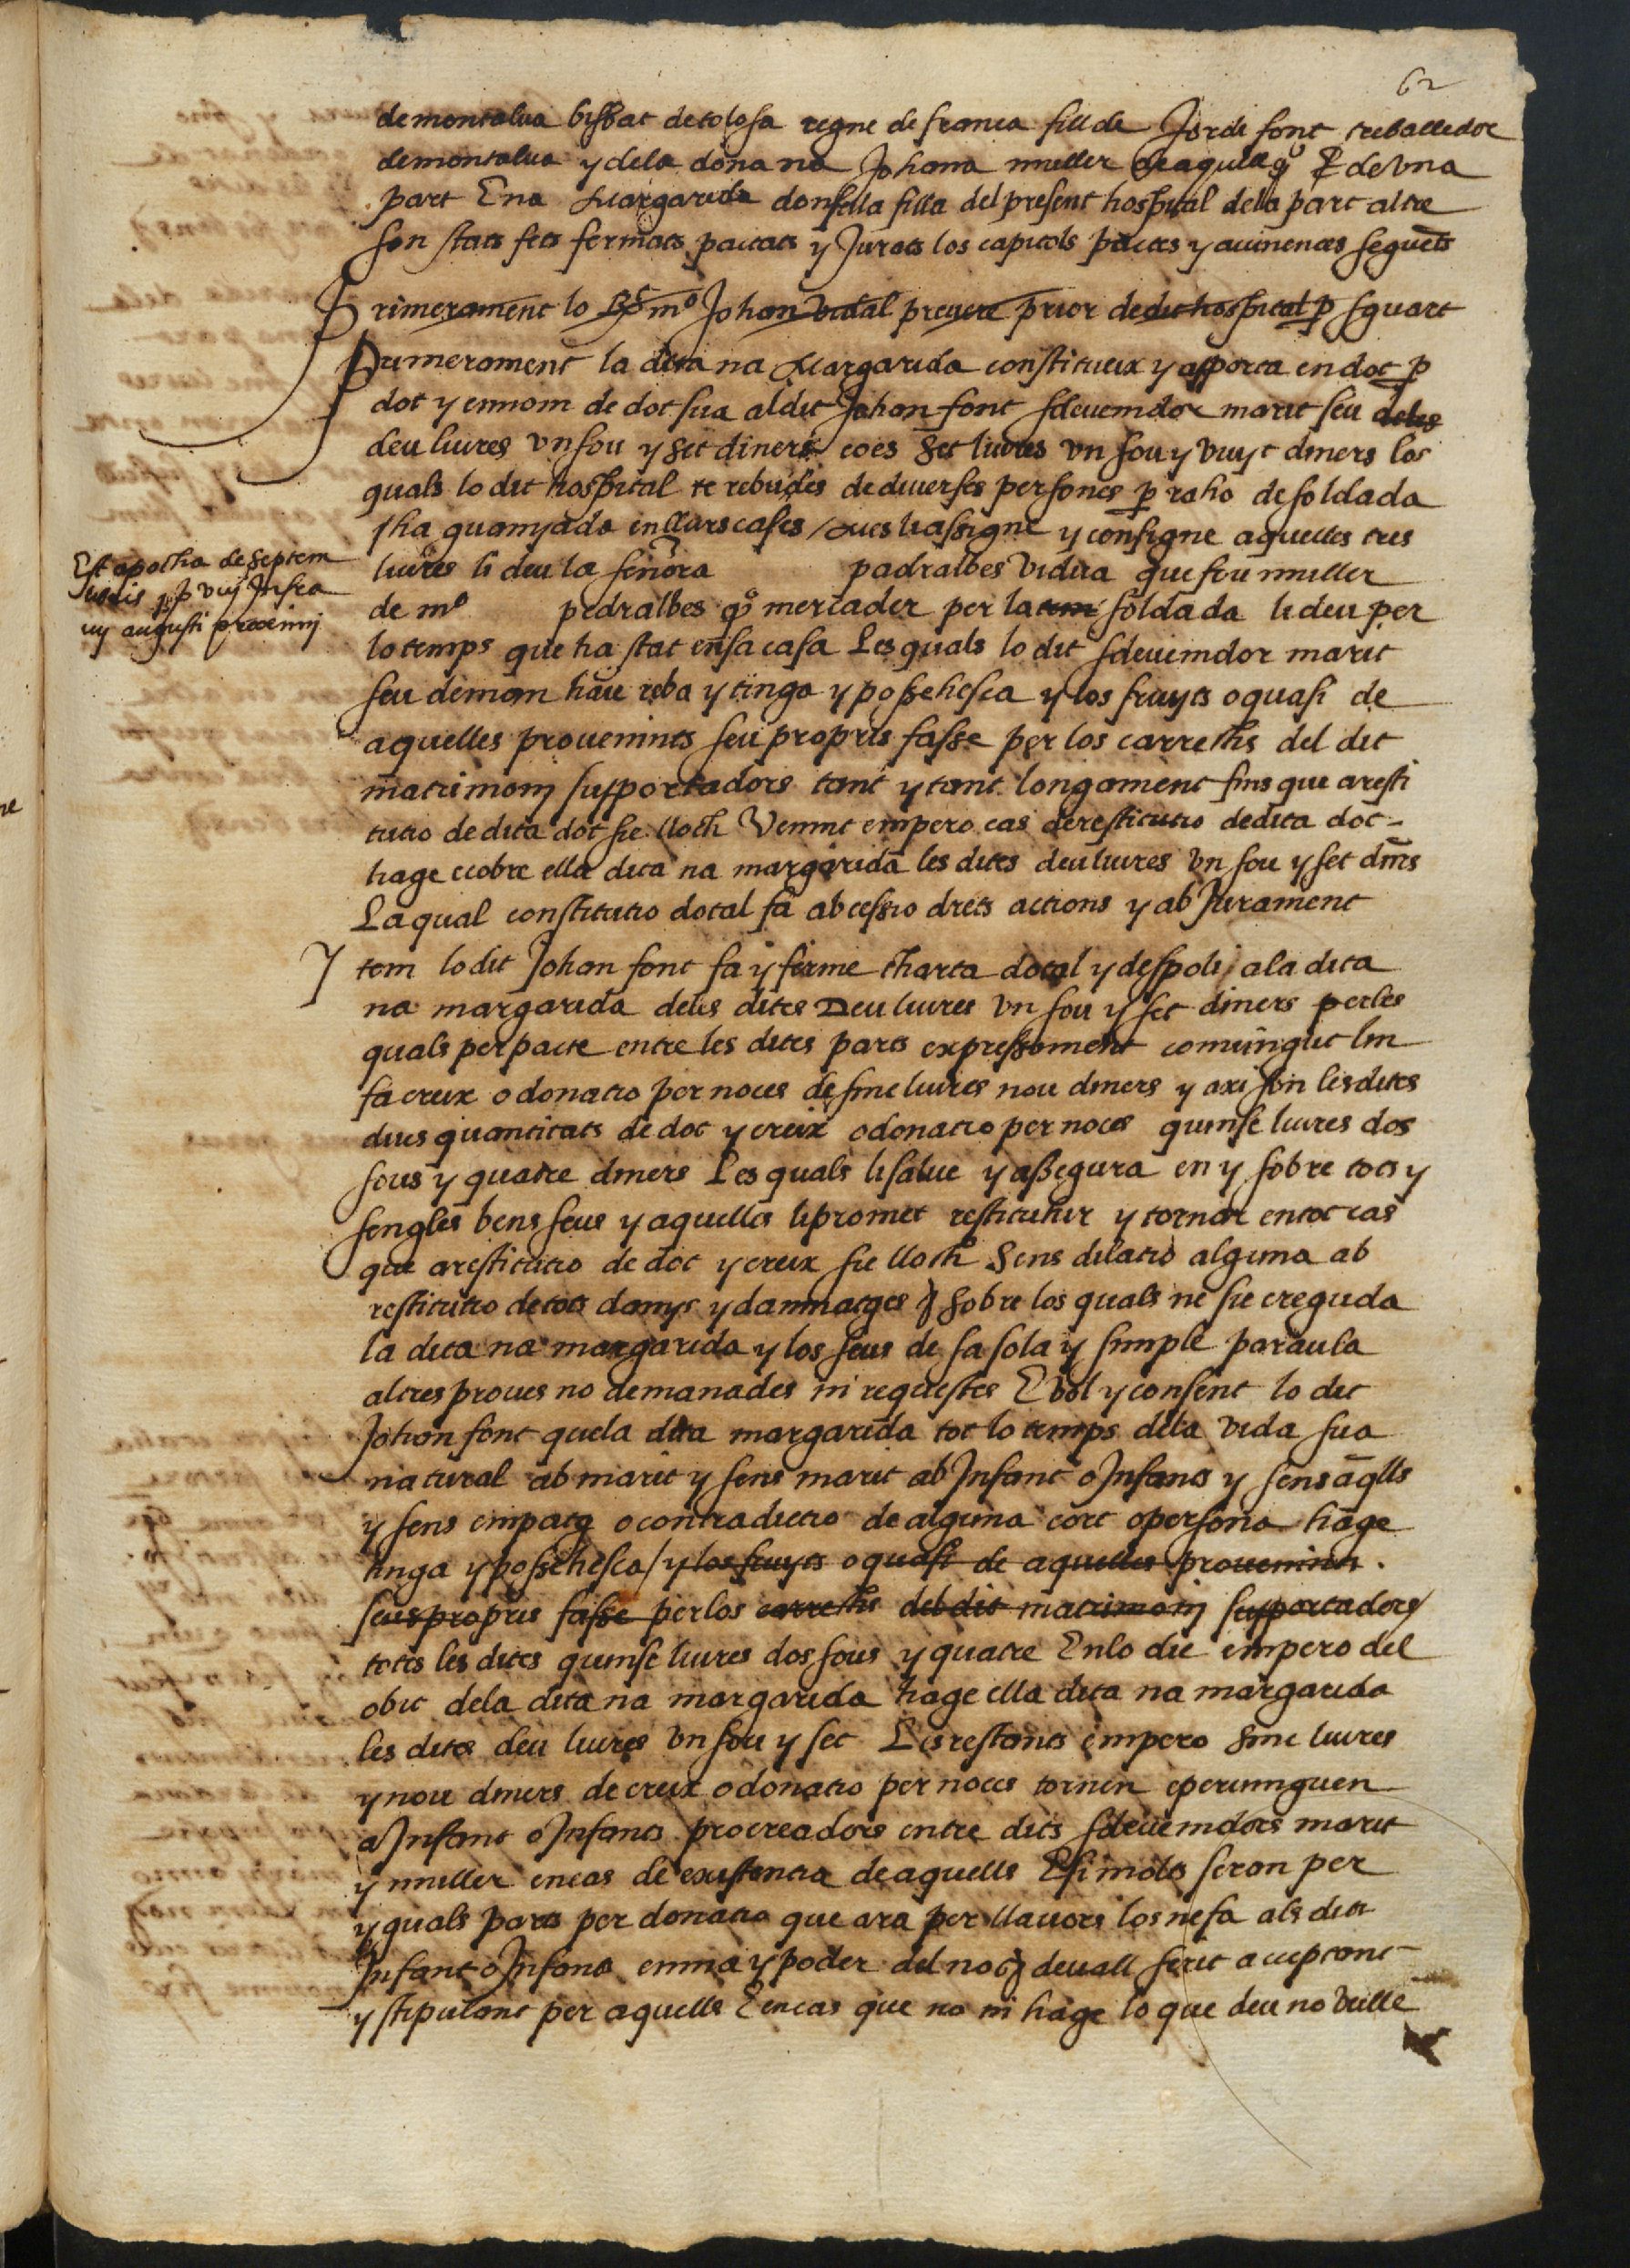 62
de montalua bisbat de tolosa regne de franca fill de Jordi font treballedor
de montalua y dela dona na Johana muller de aquell qº de vna
part E na Margarida donsella filla del present hospital dela part altre
son stats fets fermats pactats y Jurats los capitols pactes y auinences seguẽts
Primerament lo mº Johan vidal preuere prior de dit hospital p sguart
Primerament la dita na Margarida constitueix y apporta en dot p
dot y en nom de dot sua al dit Johan font sdeuenidor marit seu deles
deu liures vn sou y set diners coes set liures vn sou y vuyt diners los
quals lo dit hospital te rebudes de diuerses persones p raho de soldada
sha guanyada en llurs cases / mes li assigne y consigne aquelles tres
liures li deu la señora padralbes vidua que fou muller
de mº pedralbes qº mercader per la soldada li deu per
lo temps que ha stat en sa casa Les quals lo dit sdeuenidor marit
seu demon haie reba y tinga y possehesca y los fruyts o quasi de
aquelles prouenints seu propris fasse per los carrechs del dit
matrimonj supportadors tant y tant longament fins que a resti
tutio de dita dot sie lloch Venint empero cas de restitutio de dita dot
hage cobre ella dita na margarida les dites deu liures vn sou y set dĩns
La qual constitutio dotal fa ab cessio drets actions y ab Jurament
Est apotha de septem
libris infra
augusti
Item lo dit Johan font fa y ferme charta dotal y de spoli a la dita
na margarida deles dites Deu liures vn sou y set diners per les
quals per pacte entre les dites parts expressament conuingut lin
fa creix o donatio per noces de sinc liures nou diners y axi son les dites
dues quantitats de dot y creix o donatio per noces quinse liures dos
sous y quatre diners Les quals li salue y assegura en y sobre tots y
sengles bens seus y aquelles li promet restituhir y tornar en tot cas
que a restitutio de dot y creix sie lloch Sens dilatio alguna ab
restitutio de tots danys y dammatges sobre los quals ne sie creguda
la dita na margarida y los seus de sa sola y simple paraula
altres proues no demanades ni requestes E vol y consent lo dit
Johan font que la dita margarida tot lo temps dela vida sua
natural ab marit y sens marit ab Infant o Infants y sens aq̃lls
y sens empatg o contradictio de alguna cort o persona hage
tinga y possehesca / y los fruyts o quasi de aquelles prouenints
seus propris fasse per los carrechs del dit matrimonj supportadors /
totes les dites quinse liures dos sous y quatre En lo die empero del
obit dela dita na margarida hage ella dita na margarida
les dites deu liures vn sou y set Les restants empero sinc liures
y nou diners de creix o donatio per noces tornen e peruinguen
a Infant o Infants procreadors entre dits sdeuenidors marit
y muller en cas de existentia de aquells E si molts seran per
yguals parts per donatio que ara per llauors los ne fa als dits
Infant o Infans en ma y poder del not deuall scrit acceptant
y stipulant per aquells E en cas que no ni hage lo que deu no vulle